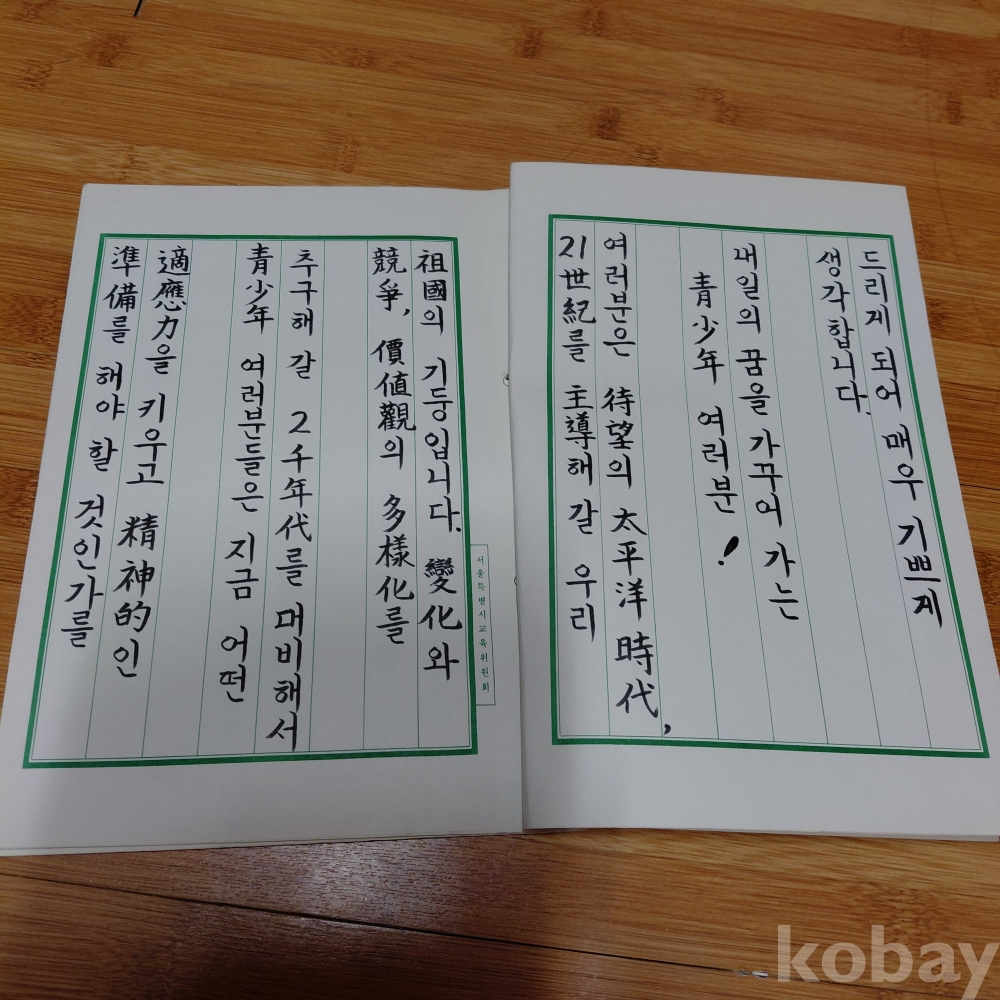 드리게 되어 매우 기쁘게
생각합니다.
내일의 꿈을 가꾸어 가는
青少年 여러분!
여러분은 待望의 太平洋 時代,
21世紀를 主導해 갈 우리
祖國의 기둥입니다. 變化와
競爭, 價値觀의 多樣化를
추구해 갈 2千年代를 대비해서
青少年 여러분들은 지금 어떤
適應力을 키우고 精神的인
準備를 해야 할 것인가를
서울특별시교육위원회
kobay